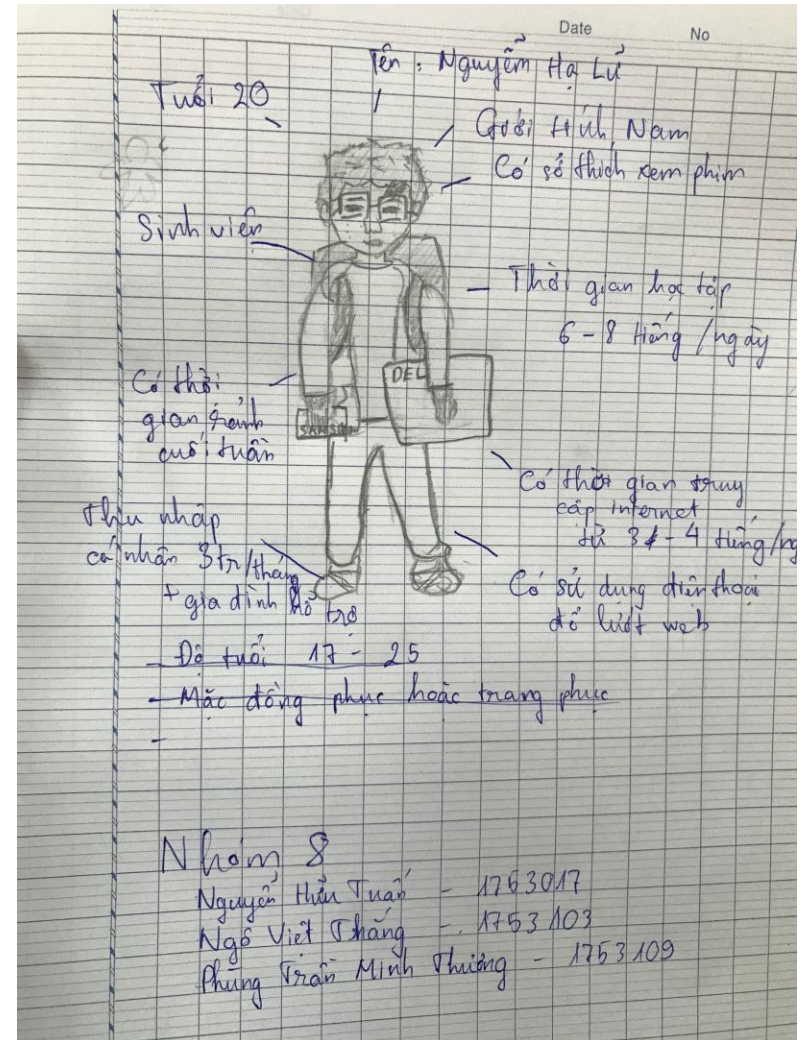 Date No
Tên : Nguyễn Hạ Lử
Tuổi 20
Giới tính Nam
Có sở thích xem phim
Sinh viên
Thời gian học tập
6 - 8 tiếng / ngày
Có thời
gian rảnh
cuối tuần
DEL
SAMSUN
Có thời gian truy
cập internet
từ 3 - 4 tiếng/ng
Thu nhập
cá nhân 3tr/tháng
+ gia đình hỗ trợ
Có sử dụng điện thoại
để lướt web
- Độ tuổi 17 - 25
- Mặc đồng phục hoặc trang phục
-
Nhóm 8
Nguyễn Hữu Tuấn - 1753017
Ngô Viết Thắng - 1753103
Phùng Trần Minh Thường - 1753109